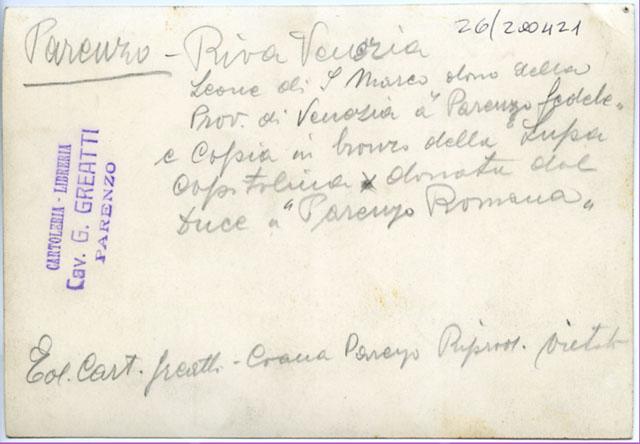 26/200421
Parenzo - Riva Venezia
Leone di S Marco dono della
Prov. di Venezia a "Parenzo fedele"
e Copia in bronzo della "Lupa
Capitolina x donata dal
Duce a "Parenzo Romana"
CARTOLERIA - LIBRERIA
Cav. G. GREATTI
PARENZO
Cart. Greatti - Parenzo Riprod. Vietata